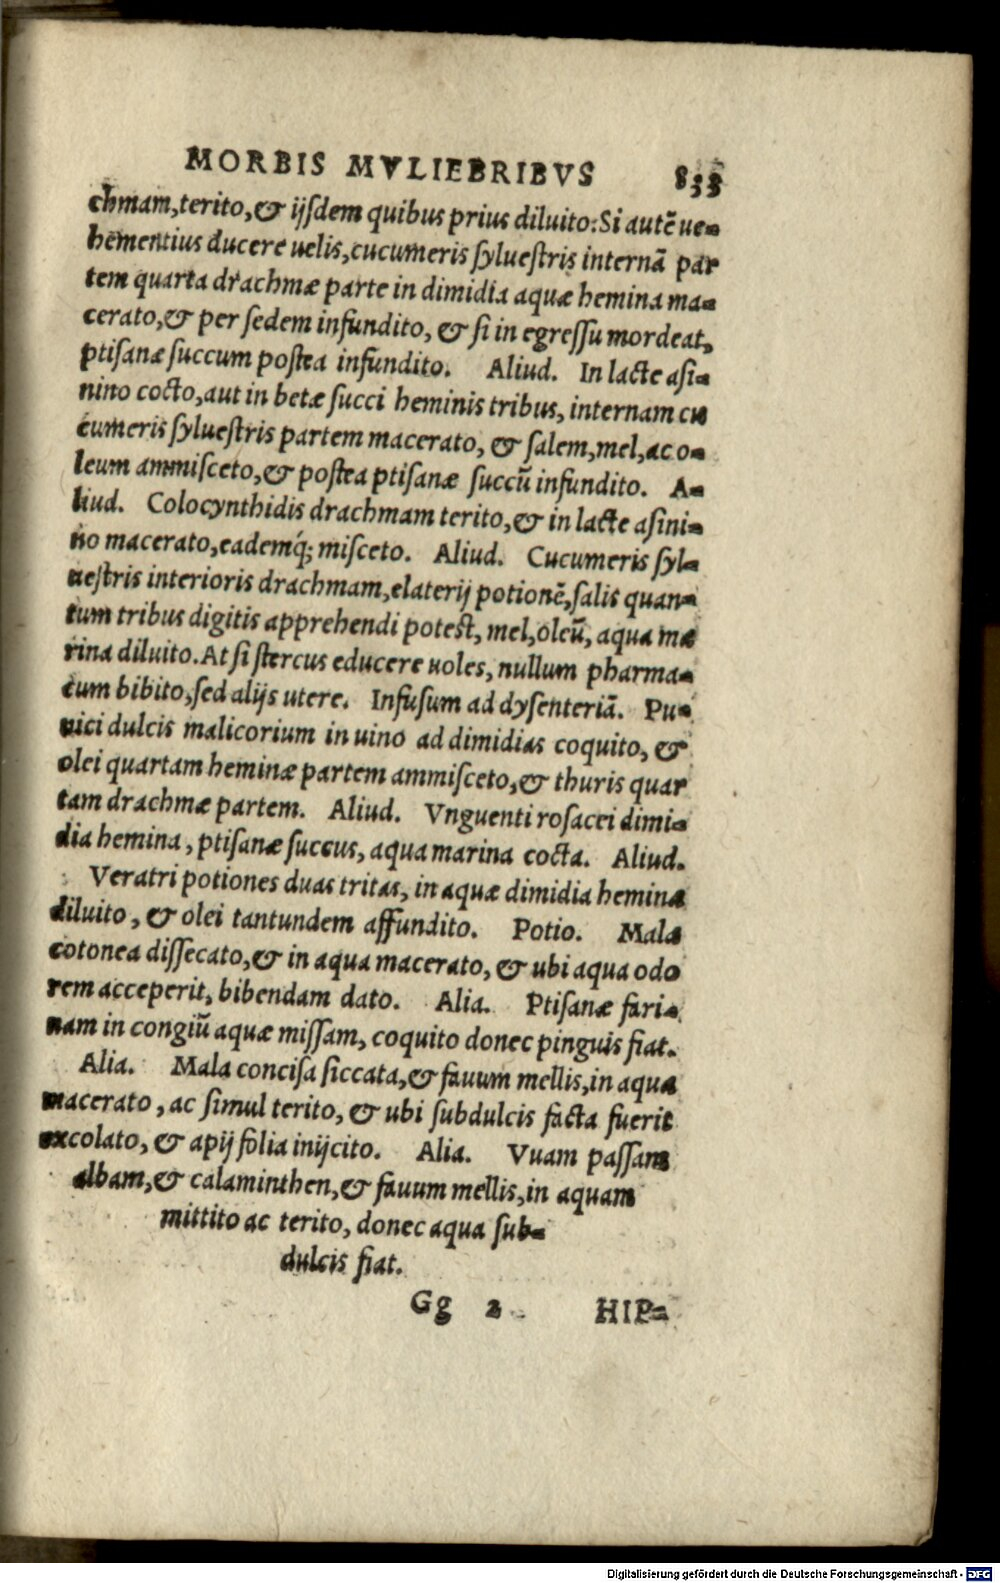 MORBIS MVLIEBRIBVS 833
chmam, terito, & ijsdem quibus prius diluito: Si autē ue-
hementius ducere uelis, cucumeris syluestris internā par
tem quarta drachmæ parte in dimidia aquæ hemina ma-
cerato, & per sedem infundito, & si in egressu mordeat,
ptisanæ succum postea infundito. Aliud. In lacte asi-
nino cocto, aut in betæ succi heminis tribus, internam cu
cumeris syluestris partem macerato, & salem, mel, ac o-
leum ammisceto, & postea ptisanæ succū infundito. A-
liud. Colocynthidis drachmam terito, & in lacte asini-
no macerato, eademq́; misceto. Aliud. Cucumeris syl-
uestris interioris drachmam, elaterij potionē, salis quan-
tum tribus digitis apprehendi potest, mel, oleū, aqua ma
rina diluito. At si stercus educere uoles, nullum pharma-
cum bibito, sed alijs utere. Infusum ad dysenteriā. Pu-
nici dulcis malicorium in uino ad dimidias coquito, &
olei quartam heminæ partem ammisceto, & thuris quar
tam drachmæ partem. Aliud. Vnguenti rosacei dimi-
dia hemina, ptisanæ succus, aqua marina cocta. Aliud.
Veratri potiones duas tritas, in aquæ dimidia hemina
diluito, & olei tantundem affundito. Potio. Mala
cotonea dissecato, & in aqua macerato, & ubi aqua odo
rem acceperit, bibendam dato. Alia. Ptisanæ fari-
nam in congiū aquæ missam, coquito donec pinguis fiat.
Alia. Mala concisa siccata, & fauum mellis, in aqua
macerato, ac simul terito, & ubi subdulcis facta fuerit
excolato, & apij folia inijcito. Alia. Vuam passam
albam, & calaminthen, & fauum mellis, in aquam
mittito ac terito, donec aqua sub-
dulcis fiat.
Gg 2 HIP-
Digitalisierung gefördert durch die Deutsche Forschungsgemeinschaft - DFG